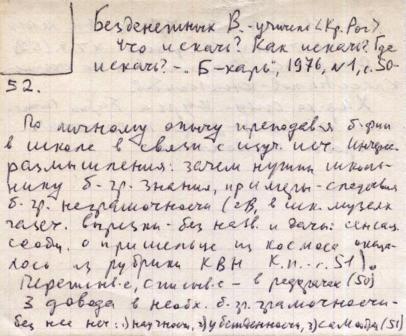 Безденежных В. - учител <Кр. Рог>
Что искать? Как искать? Где
искать? - „Б-карь", 1976, №1, с. 50-
52.
По личному опыту преподав-я б-фии
в школе в связи с изуч. ист. Интерес.
размышления: зачем нужны школь-
нику б.-гр. знания, примеры - следствия
б.-гр. неграмотности (в шк. музее
газет. вырезки - без назв. и даты: сенсац.
сообщ. о пришельце из космоса оказа-
лось из рубрики КВН К.п. - с. 51).
в редакции (50)
3 довода в необх. б.-гр. грамотности -
без нее нет: 1) научности, 2) убежденности, 3) (51)